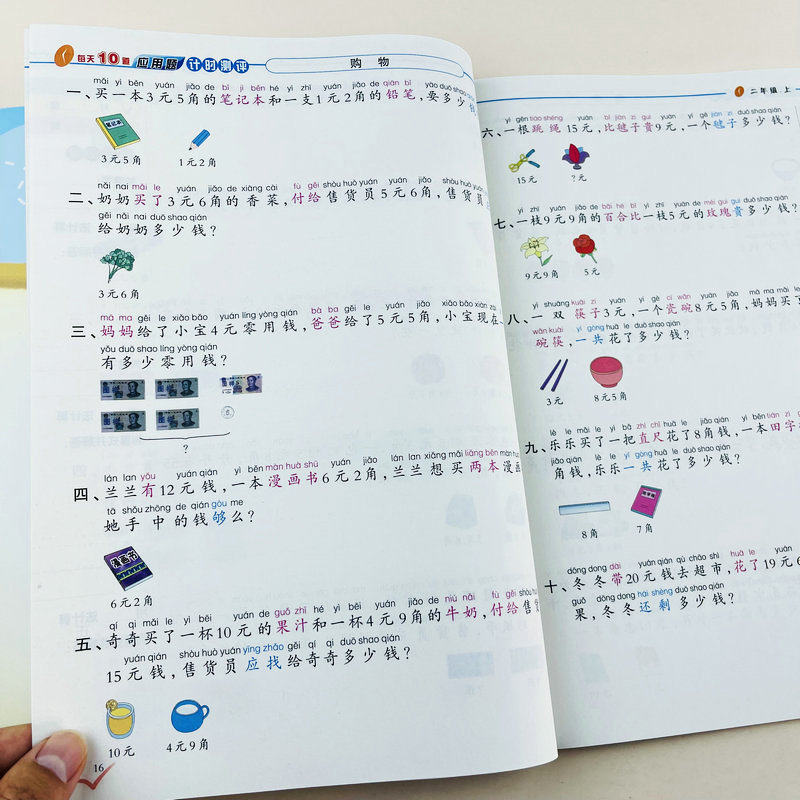 每天10道 应用题 计时测评 购物
mǎi yì běn yuán jiǎo de bǐ jì běn hé yì zhī yuán jiǎo de qiān bǐ yào duō shao
一、买一本3元5角的笔记本和一支1元2角的铅笔,要多少
笔记本
3元5角 1元2角
nǎi nai mǎi le yuán jiǎo de xiāng cài fù gěi shòu huò yuán yuán jiǎo shòu huò yuán
二、奶奶买了3元6角的香菜,付给售货员5元6角,售货员
gěi nǎi nai duō shao qián
给奶奶多少钱?
3元6角
mā ma gěi le xiǎo bǎo yuán líng yòng qián bà ba gěi le yuán jiǎo xiǎo bǎo xiàn zài
三、妈妈给了小宝4元零用钱,爸爸给了5元5角,小宝现在
yǒu duō shao líng yòng qián
有多少零用钱?
?
lán lan yǒu yuán qián yì běn màn huà shū yuán jiǎo lán lan xiǎng mǎi liǎng běn màn huà
四、兰兰有12元钱,一本漫画书6元2角,兰兰想买两本漫画
tā shǒu zhōng de qián gòu me
她手中的钱够么?
漫画书
6元2角
qí qi mǎi le yì bēi yuán de guǒ zhī hé yì bēi yuán jiǎo de niú nǎi fù gěi shòu
五、奇奇买了一杯10元的果汁和一杯4元9角的牛奶,付给售
yuán qián shòu huò yuán yīng zhǎo gěi qí qi duō shao qián
15元钱,售货员应找给奇奇多少钱?
10元 4元9角
16
二年级 上
yì gēn tiào shéng yuán bǐ jiàn zi guì yuán yí gè jiàn zi duō shao qián
六、一根跳绳15元,比毽子贵9元,一个毽子多少钱?
15元 ?元
yì zhī yuán jiǎo de bǎi hé bǐ yì zhī yuán de méi gui guì duō shao qián
七、一枝9元9角的百合比一枝5元的玫瑰贵多少钱?
9元9角 5元
yì shuāng kuài zi yuán yí gè cí wǎn yuán jiǎo mā ma mǎi le
八、一双筷子3元,一个瓷碗8元5角,妈妈买了
wǎn kuài yí gòng huā le duō shao qián
碗筷,一共花了多少钱?
3元 8元5角
lè le mǎi le yì bǎ zhí chǐ huā le jiǎo qián yì běn tián zì
九、乐乐买了一把直尺花了8角钱,一本田字
jiǎo qián lè le yí gòng huā le duō shao qián
角钱,乐乐一共花了多少钱?
8角 7角
dōng dong dài yuán qián qù chāo shì huā le yuán
十、冬冬带20元钱去超市,花了19元6
guǒ dōng dong hái shèng duō shao qián
果,冬冬还剩多少钱?